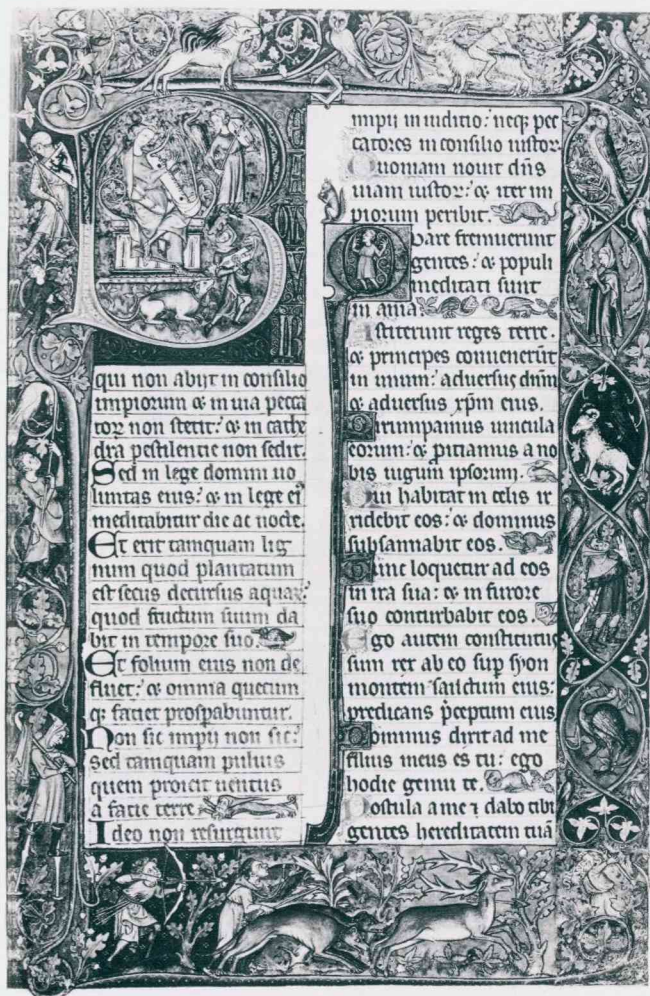 qui non abijt in consilio
impiorum & in uia pecca
tor non stetit: & in cathe
dra pestilentie non sedit.
Sed in lege domini uo
luntas eius: & in lege ei
meditabitur die ac nocte.
Et erit tamquam lig
num quod plantatum
est secus decursus aquar:
quod fructum suum da
bit in tempore suo.
Et folium eius non de
fluet: & omnia quecum
q; faciet prospabuntur.
Non sic impij non sic:
sed tamquam puluis
quem proicit uentus
a facie terre
Ideo non resurgunt
impij in iuditio: neq; pec
catores in consilio iustor
Quoniam nouit dñs
uiam iustor: & iter im
piorum peribit.
Quare fremuerunt
gentes: & populi
meditati sunt
inania.
Astiterunt reges terre.
& principes conuenerũt
in unum: aduersus dnm
& aduersus xpm eius.
Dirumpamus uincula
eorum: & proiciamus a no
bis iugum ipsorum.
Qui habitat in celis ir
ridebit eos: & dominus
subsannabit eos.
Tunc loquetur ad eos
in ira sua: & in furore
suo conturbabit eos.
Ego autem constitutus
sum rex ab eo sup syon
montem sanctum eius:
predicans pceptum eius
Dominus dixit ad me
filius meus es tu: ego
hodie genui te.
Postula a me & dabo tibi
gentes hereditatem tuã